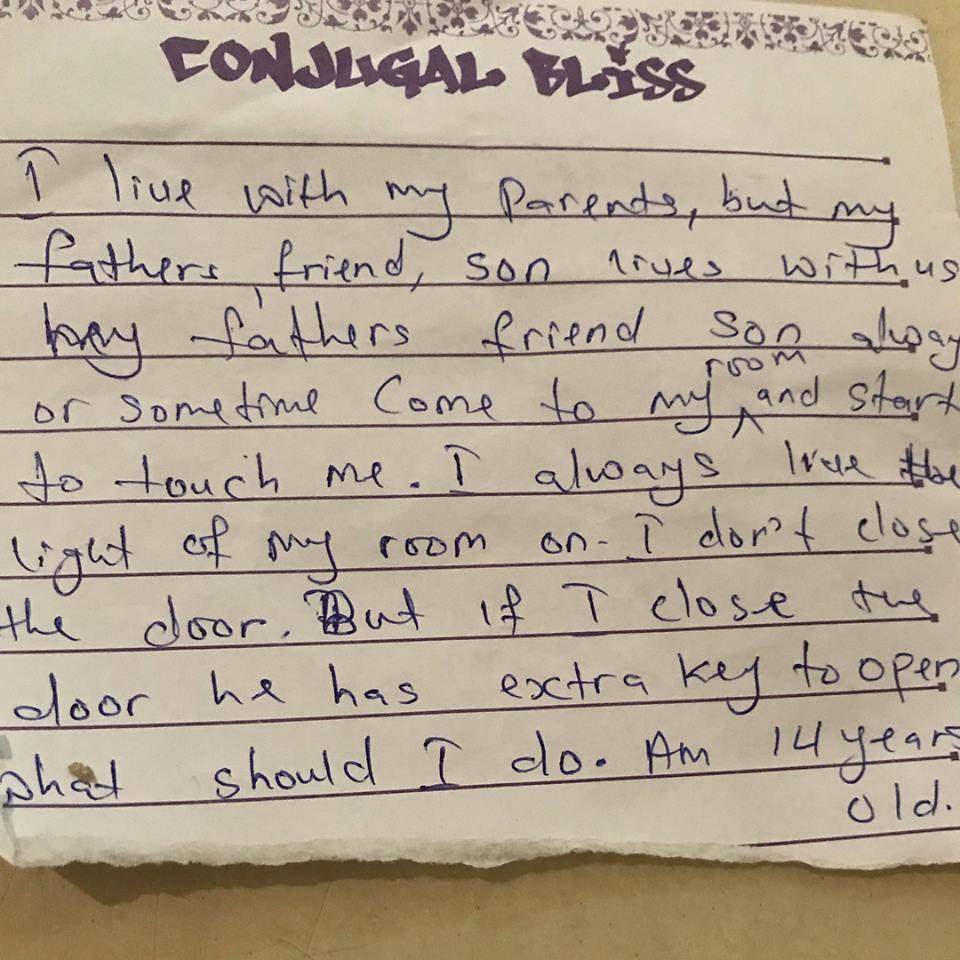 CONJUGAL BLISS
I live with my Parents, but my
fathers, friend, son lives with us
my fathers friend son alway
room
or sometime Come to my ^ and start
to touch me. I always live the
light of my room on. I don't close
the door. But if I close the
door he has extra key to open
what should I do. Am 14 years
old.